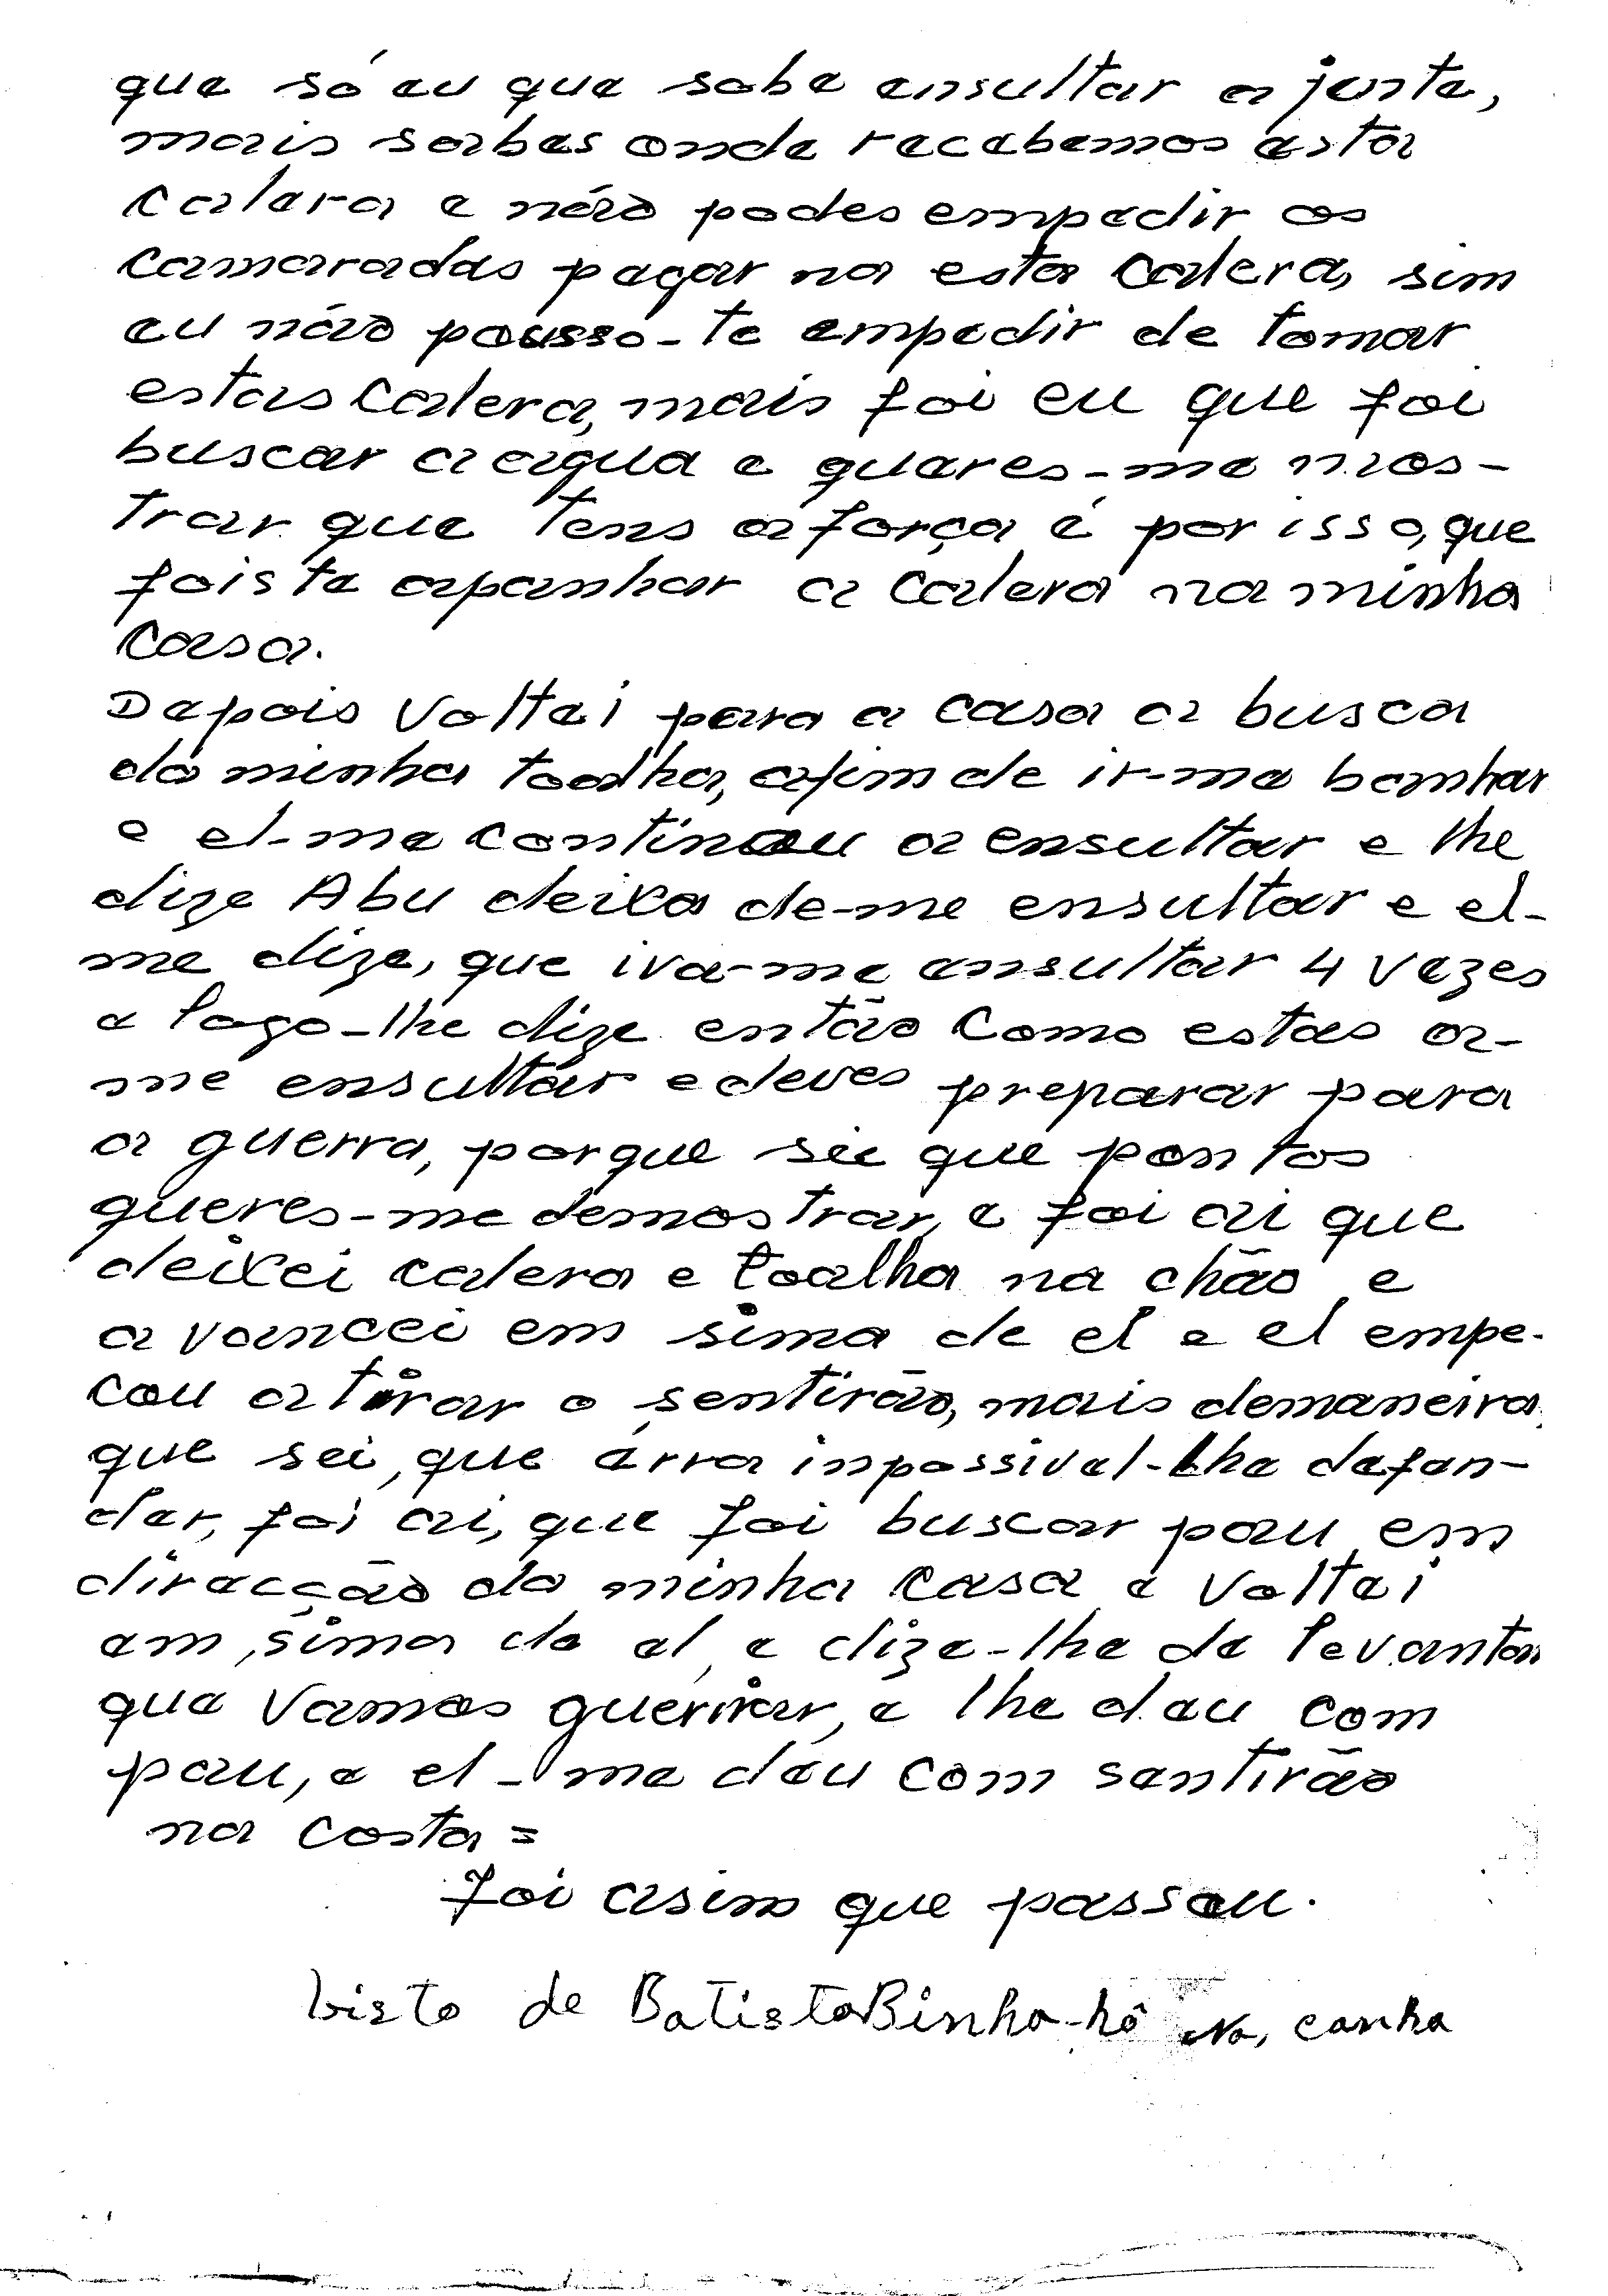 que só eu que sabe ensultar a jente,
mais sabes onde recebemos esta
calera e não podes empedir os
camaradas pagar na esta calera, sim
eu não pousso-te empedir de tomar
estas calera, mais foi eu que foi
buscar a agua e queres-me mos-
trar que tens a força é por isso, que
foiste apanhar a calera na minha
casa.
Depois voltei para a casa a busca
da minha toalha, afim de ir-me banhar
e el-me continou a ensultar e lhe
dize Abu deixa de-me ensultar e el-
me dize, que iva-me ensultar 4 vezes
e logo-lhe dize então como estas a-
me ensultar e deves preparar para
a guerra, porque sei que pontos
queres-me demostrar, e foi ai que
deixei calera e toalha na chão e
avancei em sima de el e el empe-
cou a tirar o sentirão, mais demaneira
que sei, que érra inpossivel-lhe defen-
der, foi ai, que foi buscar pau em
direcção da minha casa e voltei
em sima de el, e dize-lhe de levantar
que vamos guerriar, e lhe deu com
pau, e el-me deu com sentirão
na costa =
foi asim que passou.
Visto de Batista Binha-hô Na, canha